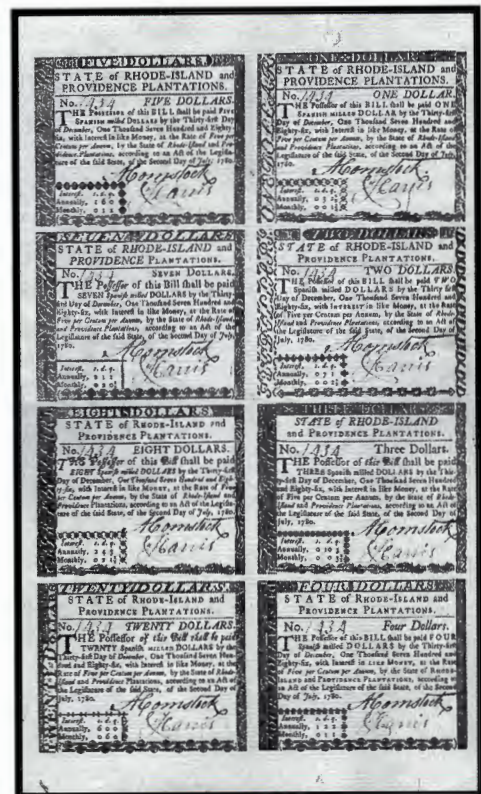 FIVE DOLLARS.
STATE of RHODE-ISLAND and
PROVIDENCE PLANTATIONS.
No. 1434 FIVE DOLLARS.
THE Possessor of this BILL shall be paid FIVE
SPANISH milled DOLLARS by the Thirty-first Day
of December, One Thousand Seven Hundred and
Eighty-six, with Interest in like Money, at the Rate of Five
per Centum per Annum, by the State of Rhode-Island and Pro-
vidence Plantations, according to an Act of the Legisla-
ture of the said State, of the Second Day of July, 1780.
Interest. s. d. q.
Annually, 1 6 0
Monthly, 0 1 2
AComstock
Harris
ONE DOLLAR
STATE of RHODE-ISLAND and
PROVIDENCE PLANTATIONS.
No. 1434 ONE DOLLAR.
THE Possessor of this BILL shall be paid ONE
SPANISH milled DOLLAR by the Thirty-first
Day of December, One Thousand Seven Hundred and
Eighty-six, with Interest in like Money, at the Rate of Five
per Centum per Annum, by the State of Rhode-Island
and Providence Plantations, according to an Act of the
Legislature of the said State, of the Second Day of July,
1780.
Interest. s. d. q.
Annually,
Monthly,
AComstock
Harris
SEVEN DOLLARS
STATE of RHODE-ISLAND and
PROVIDENCE PLANTATIONS.
No. 1434 SEVEN DOLLARS.
THE Possessor of this Bill shall be paid
SEVEN Spanish milled DOLLARS by the Thirty-
first Day of December, One Thousand Seven Hundred and
Eighty-six, with Interest in like Money, at the Rate of
Five per Centum per Annum, by the State of Rhode-Island
and Providence Plantations, according to an Act of the
Legislature of the said State, of the Second Day of July,
1780.
Interest. s. d. q.
Annually,
Monthly,
AComstock
Harris
TWO DOLLARS
STATE of RHODE-ISLAND and
PROVIDENCE PLANTATIONS.
No. 1434 TWO DOLLARS.
THE Possessor of this BILL shall be paid TWO
Spanish milled DOLLARS by the Thirty-first
Day of December, One Thousand Seven Hundred and
Eighty-six, with INTEREST in like Money, at the Rate
of Five per Centum per Annum, by the State of Rhode-
Island and Providence Plantations, according to an Act of
the Legislature of the said State, of the second Day of
July, 1780.
Interest. s. d. q.
Annually,
Monthly,
AComstock
Harris
EIGHT DOLLARS
STATE of RHODE-ISLAND and
PROVIDENCE PLANTATIONS.
No. 1434 EIGHT DOLLARS.
THE Possessor of this Bill shall be paid
EIGHT Spanish milled DOLLARS by the Thirty-first
Day of December, One Thousand Seven Hundred and Eigh-
ty-six, with Interest in like Money, at the Rate of Five
per Centum per Annum, by the State of Rhode-Island and
Providence Plantations, according to an Act of the Legisla-
ture of the said State, of the Second Day of July, 1780.
Interest. s. d. q.
Annually, 2 4 3
Monthly,
AComstock
Harris
THREE DOLLARS
STATE of RHODE-ISLAND
and PROVIDENCE PLANTATIONS.
No. 1434 Three Dollars.
THE Possessor of this Bill shall be paid
THREE Spanish milled DOLLARS by the Thir-
ty-first Day of December, One Thousand Seven Hundred
and Eighty-six, with Interest in like Money, at the Rate
of Five per Centum per Annum, by the State of Rhode-
Island and Providence Plantations, according to an Act of
the Legislature of the said State, of the Second Day of
July, 1780.
Interest. s. d. q.
Annually, 0 10 3
Monthly,
AComstock
Harris
TWENTY DOLLARS.
TWENTY DOLLARS
STATE of RHODE-ISLAND and
PROVIDENCE PLANTATIONS.
No. 1434 TWENTY DOLLARS.
THE Possessor of this Bill shall be paid
TWENTY Spanish MILLED DOLLARS by the
Thirty-first Day of December, One Thousand Seven Hun-
dred and Eighty-six, with Interest in like Money, at the
Rate of Five per Centum per Annum, by the State of Rhode-
Island and Providence Plantations, according to an Act of
the Legislature of the said State, of the Second Day of
July, 1780.
Interest. s. d. q.
Annually, 6 0 0
Monthly, 0 6 0
AComstock
Harris
FOUR DOLLARS
STATE of RHODE-ISLAND and
PROVIDENCE PLANTATIONS.
No. 1434 Four Dollars.
THE Possessor of this BILL shall be paid FOUR
Spanish milled DOLLARS by the Thirty-first
Day of December, One Thousand Seven Hundred and
Eighty-six, with Interest in LIKE MONEY, at the Rate
of Five per Centum per Annum, by the State of RHODE-
ISLAND and PROVIDENCE PLANTATIONS, according to
an Act of the Legislature of the said State, of the Second
Day of July, 1780.
Interest. s. d. q.
Annually, 1 2 2
Monthly,
AComstock
Harris